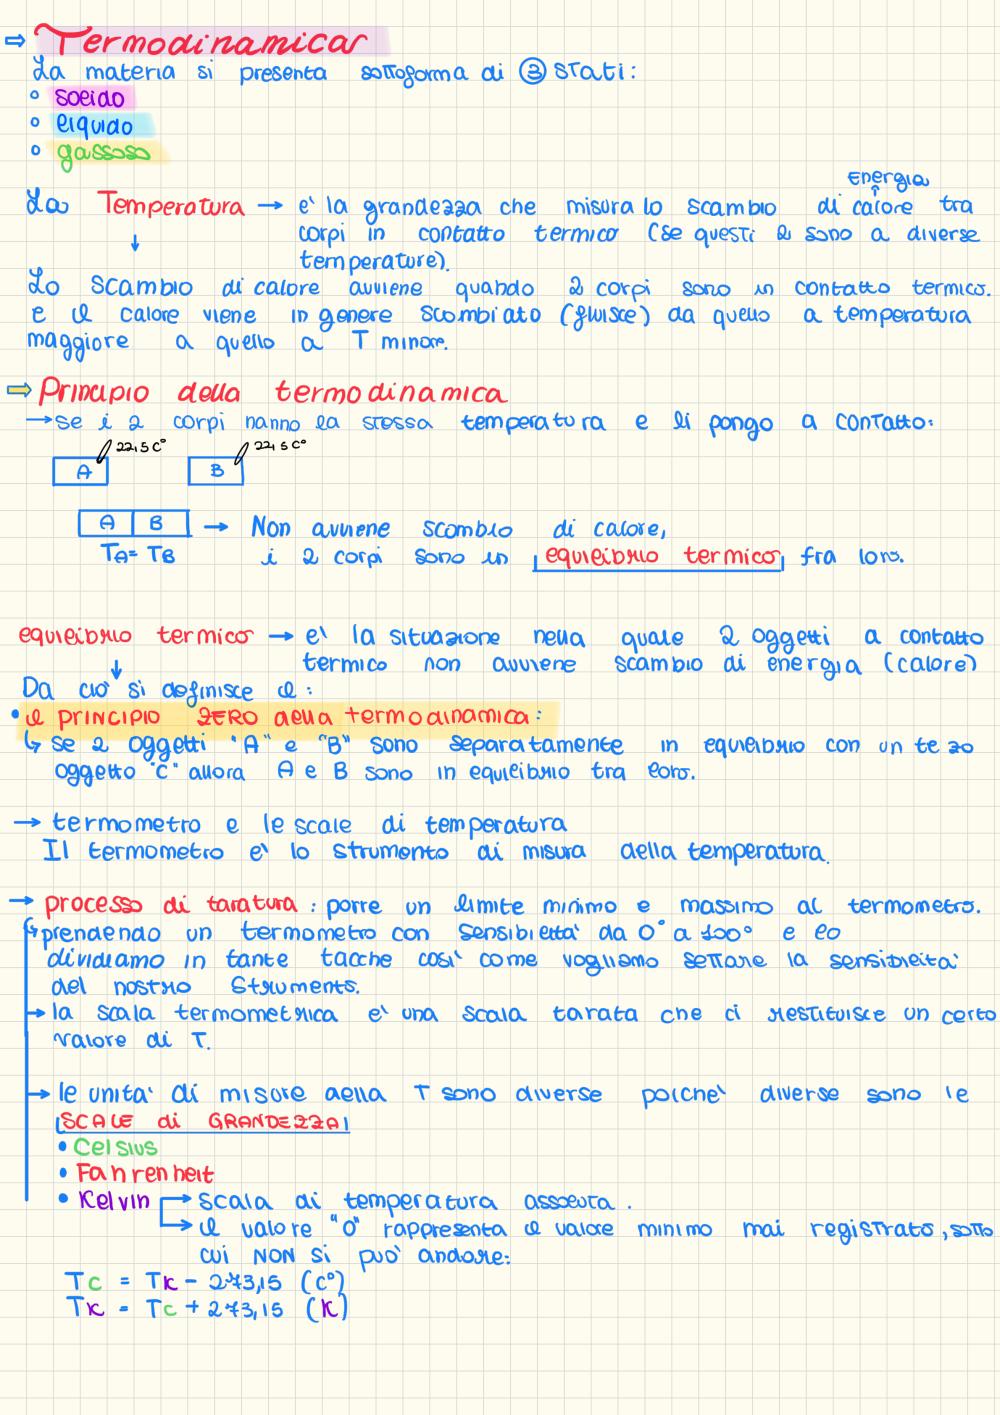 ⇒ Termodinamica
La materia si presenta sottoforma di 3 stati:
° solido
° liquido
° gassoso
Energia
La Temperatura → e' la grandezza che misura lo scambio di calore tra
corpi in contatto termico (se questi 2 sono a diverse
temperature).
Lo scambio di calore avviene quando 2 corpi sono in contatto termico.
e il calore viene in genere scambiato (fluisce) da quello a temperatura
maggiore a quello a T minore.
⇒ Principio della termodinamica
→ se i 2 corpi hanno la stessa temperatura e li pongo a contatto:
22,5 C° 22,5 C°
A B
A B → Non avviene scambio di calore,
TA = TB i 2 corpi sono in equilibrio termico fra loro.
equilibrio termico → e' la situazione nella quale 2 oggetti a contatto
termico non avviene scambio di energia (calore)
Da cio' si definisce il:
• il PRINCIPIO ZERO della termodinamica:
↳ se 2 oggetti "A" e "B" sono separatamente in equilibrio con un te zo
oggetto "C" allora A e B sono in equilibrio tra loro.
→ termometro e le scale di temperatura
Il termometro e' lo strumento di misura della temperatura.
→ processo di taratura: porre un limite minimo e massimo al termometro.
↳ prendendo un termometro con sensibilita' da 0° a 100° e lo
dividiamo in tante tacche cosi' come vogliamo settare la sensibilita'
del nostro strumento.
→ la scala termometrica e' una scala tarata che ci restituisce un certo
valore di T.
→ le unita' di misure della T sono diverse poiche' diverse sono le
SCALE di GRANDEZZA
• Celsius
• Fahrenheit
• Kelvin → scala di temperatura assoluta.
→ il valore "0" rappresenta il valore minimo mai registrato, sotto
cui NON si puo' andare:
Tc = Tk - 273,15 (C°)
Tk = Tc + 273,15 (K)